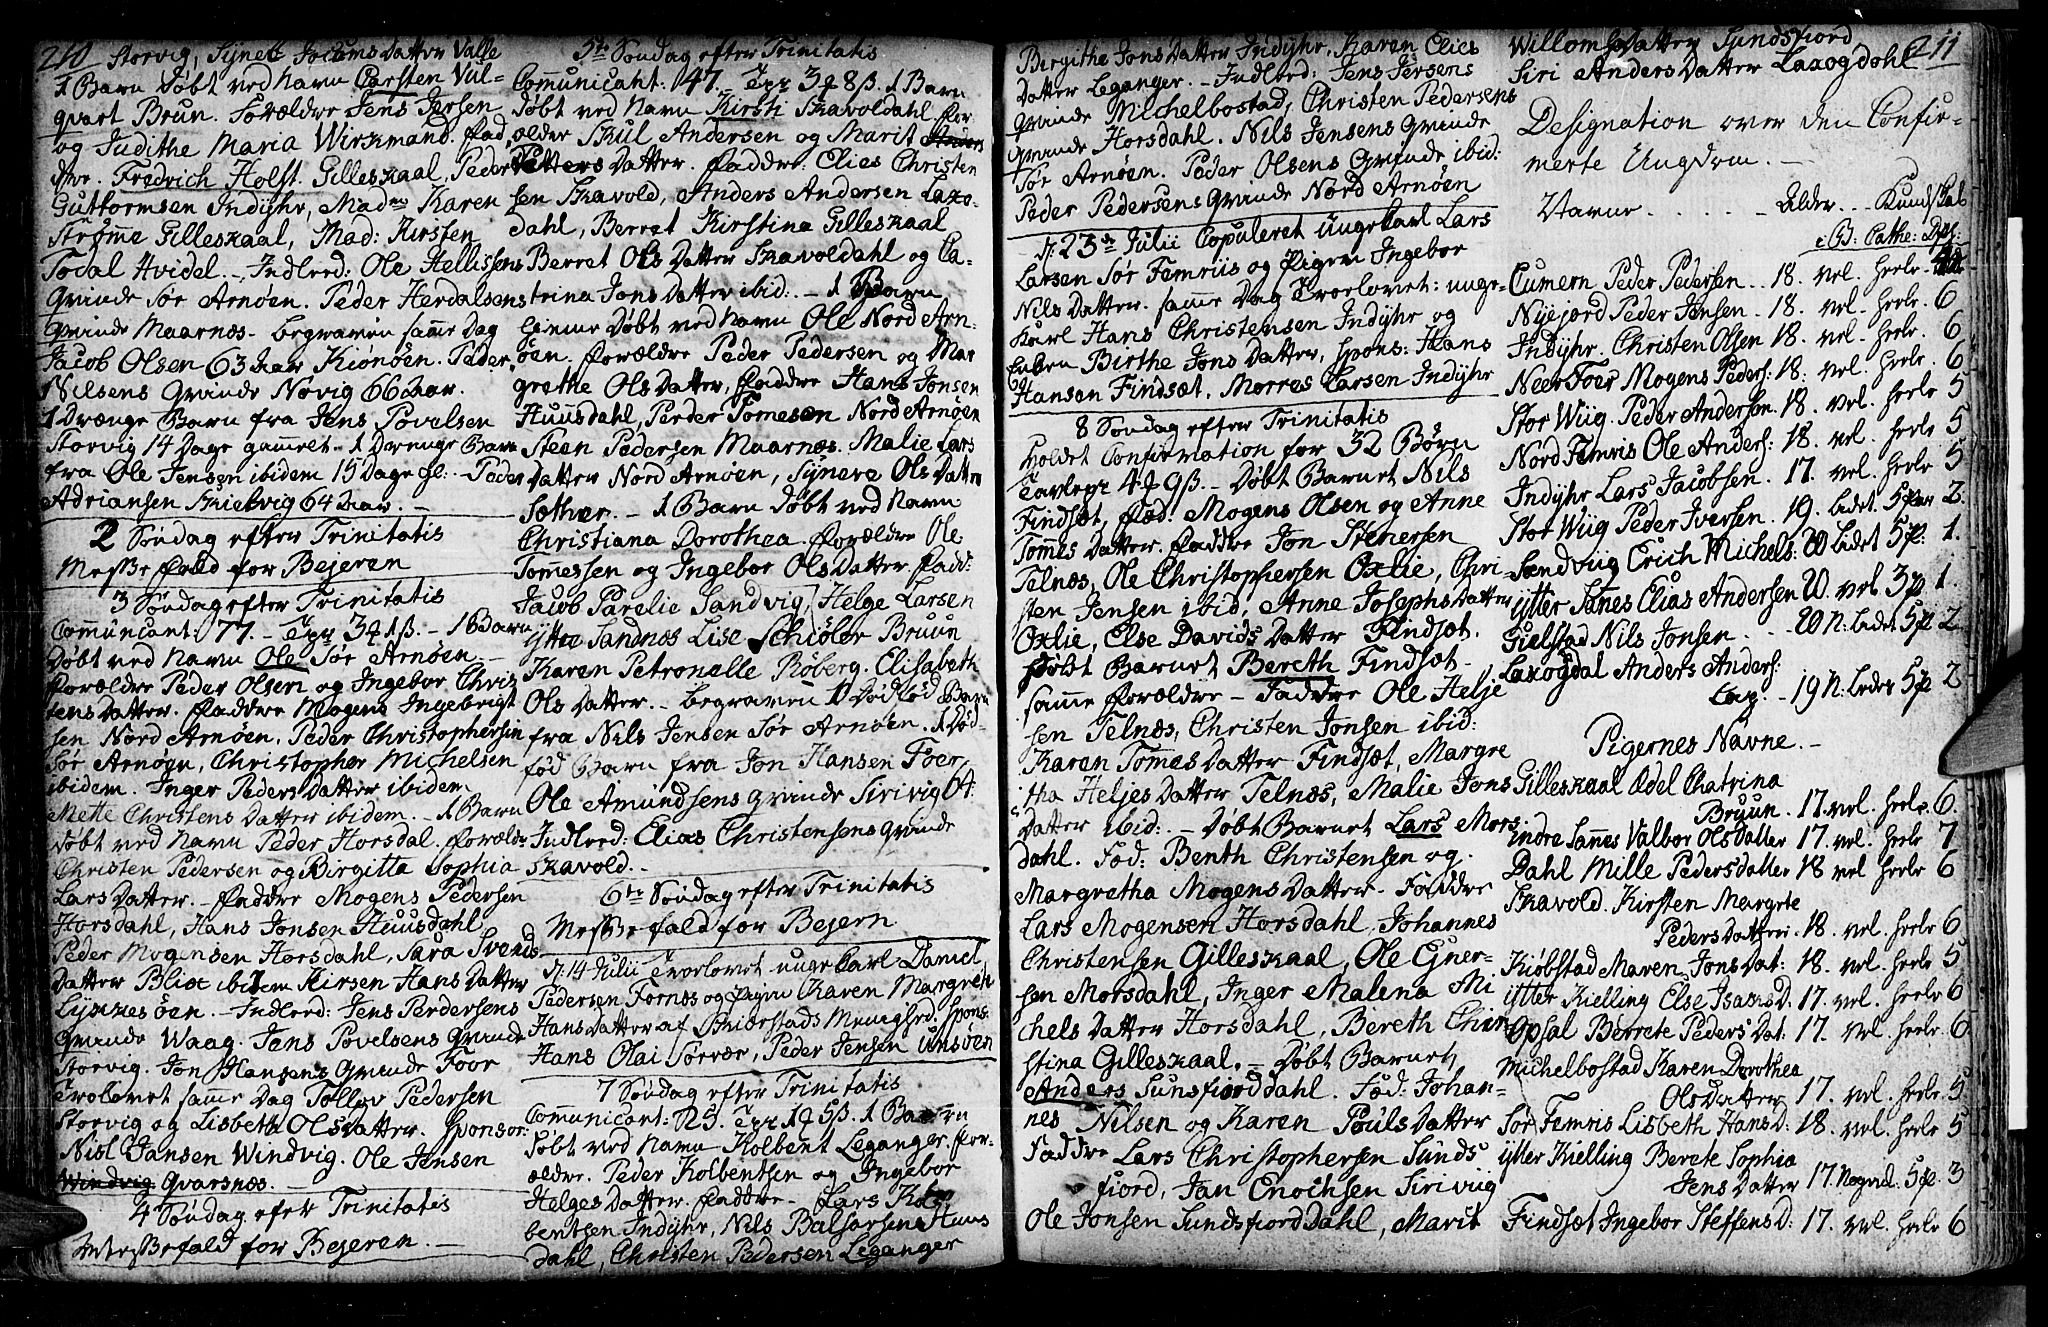 210
Storvig, Synet Jochums Datter Valle
1 Barn Døbt ved Navn Carsten Vul-
qvart Brun. Forældre Jens Jersen
og Judithe Maria Wirkmand. Fad,
dere. Fredrich Holst Gilleskaal, Peder
Guttormsen Indyhr, Madme Karen
Strømme Gilleskaal, Mad: Kirsten
Todal Hvidel. Indleed: Ole Hellissens
Qvinde Sør Arnøen. Peder Herdalsens
Qvinde Maarnæs. begraven samme Dag
Jacob Olsen 63 Aar Kionøen. Peder
Nilsens Qvinde Novig 66 Aar.
1 Drænge Barn fra Jens Povelsen
Storvig 14 Dage gammel. 1 Drenge Barn
fra Ole Jensen ibidem 15 Dage gl: Peder
Adriansen Skielvig 64 Aar.
2 Søndag efter Trinitatis
Messefald for Bejeren
3 Søndag efter Trinitatis
Communicant: 77. 3 1ß. 1 Barn
Døbt ved Navn Ole Sør Arnøen.
Forældre Peder Olsen og Ingebor Chris
tens Datter. Faddre Mogens Ingebrigt
sen Nord Arnøen, Peder Christophersen
Sør Arnøen, Christopher Michelsen
ibidem. Inger Peders Datter ibidem
Mette Christens Datter ibidem. 1 Barn
døbt ved Navn Peder Horsdal. Foreld:
Christen Pedersen og Birgitta Sophia
Lars Datter. Faddre Mogens Pedersen
Horsdahl, Hans Jonsen Huusdahl
Peder Mogensen Horsdahl, Sara Svends
Datter Bliæ ibidem Kirsen Hans Datter
Lykkesøen. Indleed: Jens Perdersens
Qvinde Waag. Jens Povelsens Qvinde
Storvig. Jon Hansens Qvinde Foor
Trolovet samme Dag Tollov Pedersen
Storvig og Lisbeth Ols Datter. Sponsor:
Nisl Jansen Windvig. Ole Jensen
Windvig Qvarsnæs.
4 Søndag efter Trinitatis
Messefald for Bejeren.
5te Søndag efter Trinitatis
Communicaht: 47. 3 8ß. 1 Barn
Døbt ved Navn Kirsti Skavoldahl. For
ældre Skul Andersen og Marit Anders
Petters Datter. Faddre: Elies Christen
sen Skavold, Anders Andersen Laxo-
Dahl, Berret Kirstina Gilleskaal
Berret Ols Datter Skavoldahl og Ca-
trina Jons Datter ibid. 1 Barn
Hiemme Døbt ved Navn Ole Nord Arn-
øen. Forældre Peder Pedersen og Mar
grethe Ols Datter, Faddre Hans Jonsen
Huusdahl, Perder Tomesen Nord Arnøen
Steen Pedersen Maarnæs. Malie Lars
Datter Nord Arnøen, Synere Ols Datter
Søther. 1 Barn Døbt ved Navn
Christiana Dorothea. Forældre Ole
Tomessen og Ingebor Ols Datter. Fadd:
Jacob Parelie Sandvig, Helge Larsen
Ytter Sandnæs Lise Schiøler Bruun
Karen Petronelle Røberg. Elisabeth
Ols Datter. begraven 1 Dødfød Barn
fra Nils Jensen Sør Arnøen. 1 Død-
fød Barn fra Jon Hansen Foer,
Ole Amundsens Qvinde Sirivig 64.
Indleed: Elias Christensens Qvinde
Skavold.
6te Søndag efter Trinitatis
Messefald for Bejern
d: 14 Julii Trorlovet unge Karl Daniel
Pedersen Fornæs og Pigen Karen Margreth
Hans Datter af Skierstads Menighed. Spons:
Hans Olai Sørvær, Peder Jensen Unsøen
7 Søndag efter Trinitatis
Communicant: 25. 1 5ß. 1 Barn
Døbt ved Navn Kolbent Leganger. For-
ældre. Peder Kolbentsen og Ingebor
Helges Datter. Faddre Lars Kol
bentsen Indyhr, Nils Balsarsen Huus
dahl, Christen Pedersen Leganger
211
Birgithe Jons Datter Indyhr, Karen Elies
Datter Leganger. Indleed: Jens Jersens
Qvinde Michelbostad, Christen Pedersens
Qvinde Horsdahl. Nils Jensens Qvinde
Sør Arnøen. Peder Olsens Qvinde ibid:
Peder Pedersens Qvinde Nord Arnøen
d: 23de Julii Copuleret Ungekarl Lars
Larsen Sør Femriis og Pigen Ingebor
Nils Datter. samme Dag Trorlovet: unge-
karl Hans Christensen Indyhr og
Enken Birthe Jons Datter, Spons: Hans
Hansen Findsæt, Morres Larsen Indyhr
8 Søndag efter Trinitatis
Holdet Confirmation for 32 Børn
4 9ß. Døbt Barnet Nils
Findsæt, Fød: Mogens Olsen og Anne
Tommes Datter. Faddre Jon Stenersen
Telnæs, Ole Christophersen Oxlie, Chri
sten Jensen ibid, Anne Josephs Datter
Oxlie, Else Davids Datter Findsæt.
Døbt Barnet Bereth Findsæt
samme Forældre Faddre Ole Helje
sen Telnæs, Christen Jonsen ibid:
Karen Tommes Datter Findsæt, Margre
tha Heljes Datter Telnæs, Malie Jons
Datter ibid: Døbt Barnet Lars Mors:
dahl. Fød: Benth Christensen og
Margretha Mogens Datter. Faddre
Lars Mogensen Horsdahl, Johannes
Christensen Gilleskaal, Ole Ejner-
sen Morsdahl, Inger Malena Mi
chels Datter Horsdahl, Bereth Chri
stina Gilleskaal. Døbt Barnet
Anders Sunsfiorddahl. Fød: Johan-
nes Nilsen og Karen Pouls Datter
Faddre Lars Christophersen Sunds
fiord, Jan Enochsen Sirivig
Ole Jonsen Sundsfiord Dahl, Marit
Willoms Datter Sundsfiord
Siri Anders Datter Laxogdahl
Designation over den Confir-
merte Ungdom.
Navne. Alder. Kundskab
Cumern Peder Pedersen. 18. vel. heele
Nyejord Peder Jensen. 18. vel. heele. 6
Indyhr. Christen Olsen 18. vel. heele. 6
Neer Foer Mogens Peders: 18. vel. heele. 6
Stor Wiig. Peder Andersen. 18. vel. heele 5
Nord Femris Ole Anders: 18. vel. heele 5
Indyhr Lars Jacobsen. 17. vel. heele 5
Stor Wiig Peder Iversen. 19. Lidet 5 2.
Sandviig Erich Michels: 20 Lidet 5 p: 1.
ytter Sanes Elias Andersen 20. vel 3 p 1.
Gielstad Nils Jonsen. 20 N: Lidet 5 p 2
Laxogdal Anders Anders:
19 N: Lidet 5 p 2
Pigernes Navne.
Gilleskaal Edel Chatrina
Bruun. 17. vel. heele. 6.
indre Sannes Valbor Olsdatter 17. vel. heele 7
Dahl Mille Pedersdatter 18 vel heele 6
Skavold. Kirsten Margrete
Peders Datter. 18. vel. heele 6
Kiøbstad Maren Jons Dat: 18. vel. heele 5
ytter Kielling Else Isaks D: 17. vel. heele 6
Opsal Berrete Peders Dat: 17. vel. heele. 6
Michelbostad Karen Dorothea
Ols Datter 17. vel. heele. 5
Sør Femris Lisbeth Hans D: 18. vel. heele 5
ytter Kielling Berete Sophia
Jens Datter 17. Nogenl. 5 p. 3
Findsæt Ingebor Steffens D: 17. vel. heele 6